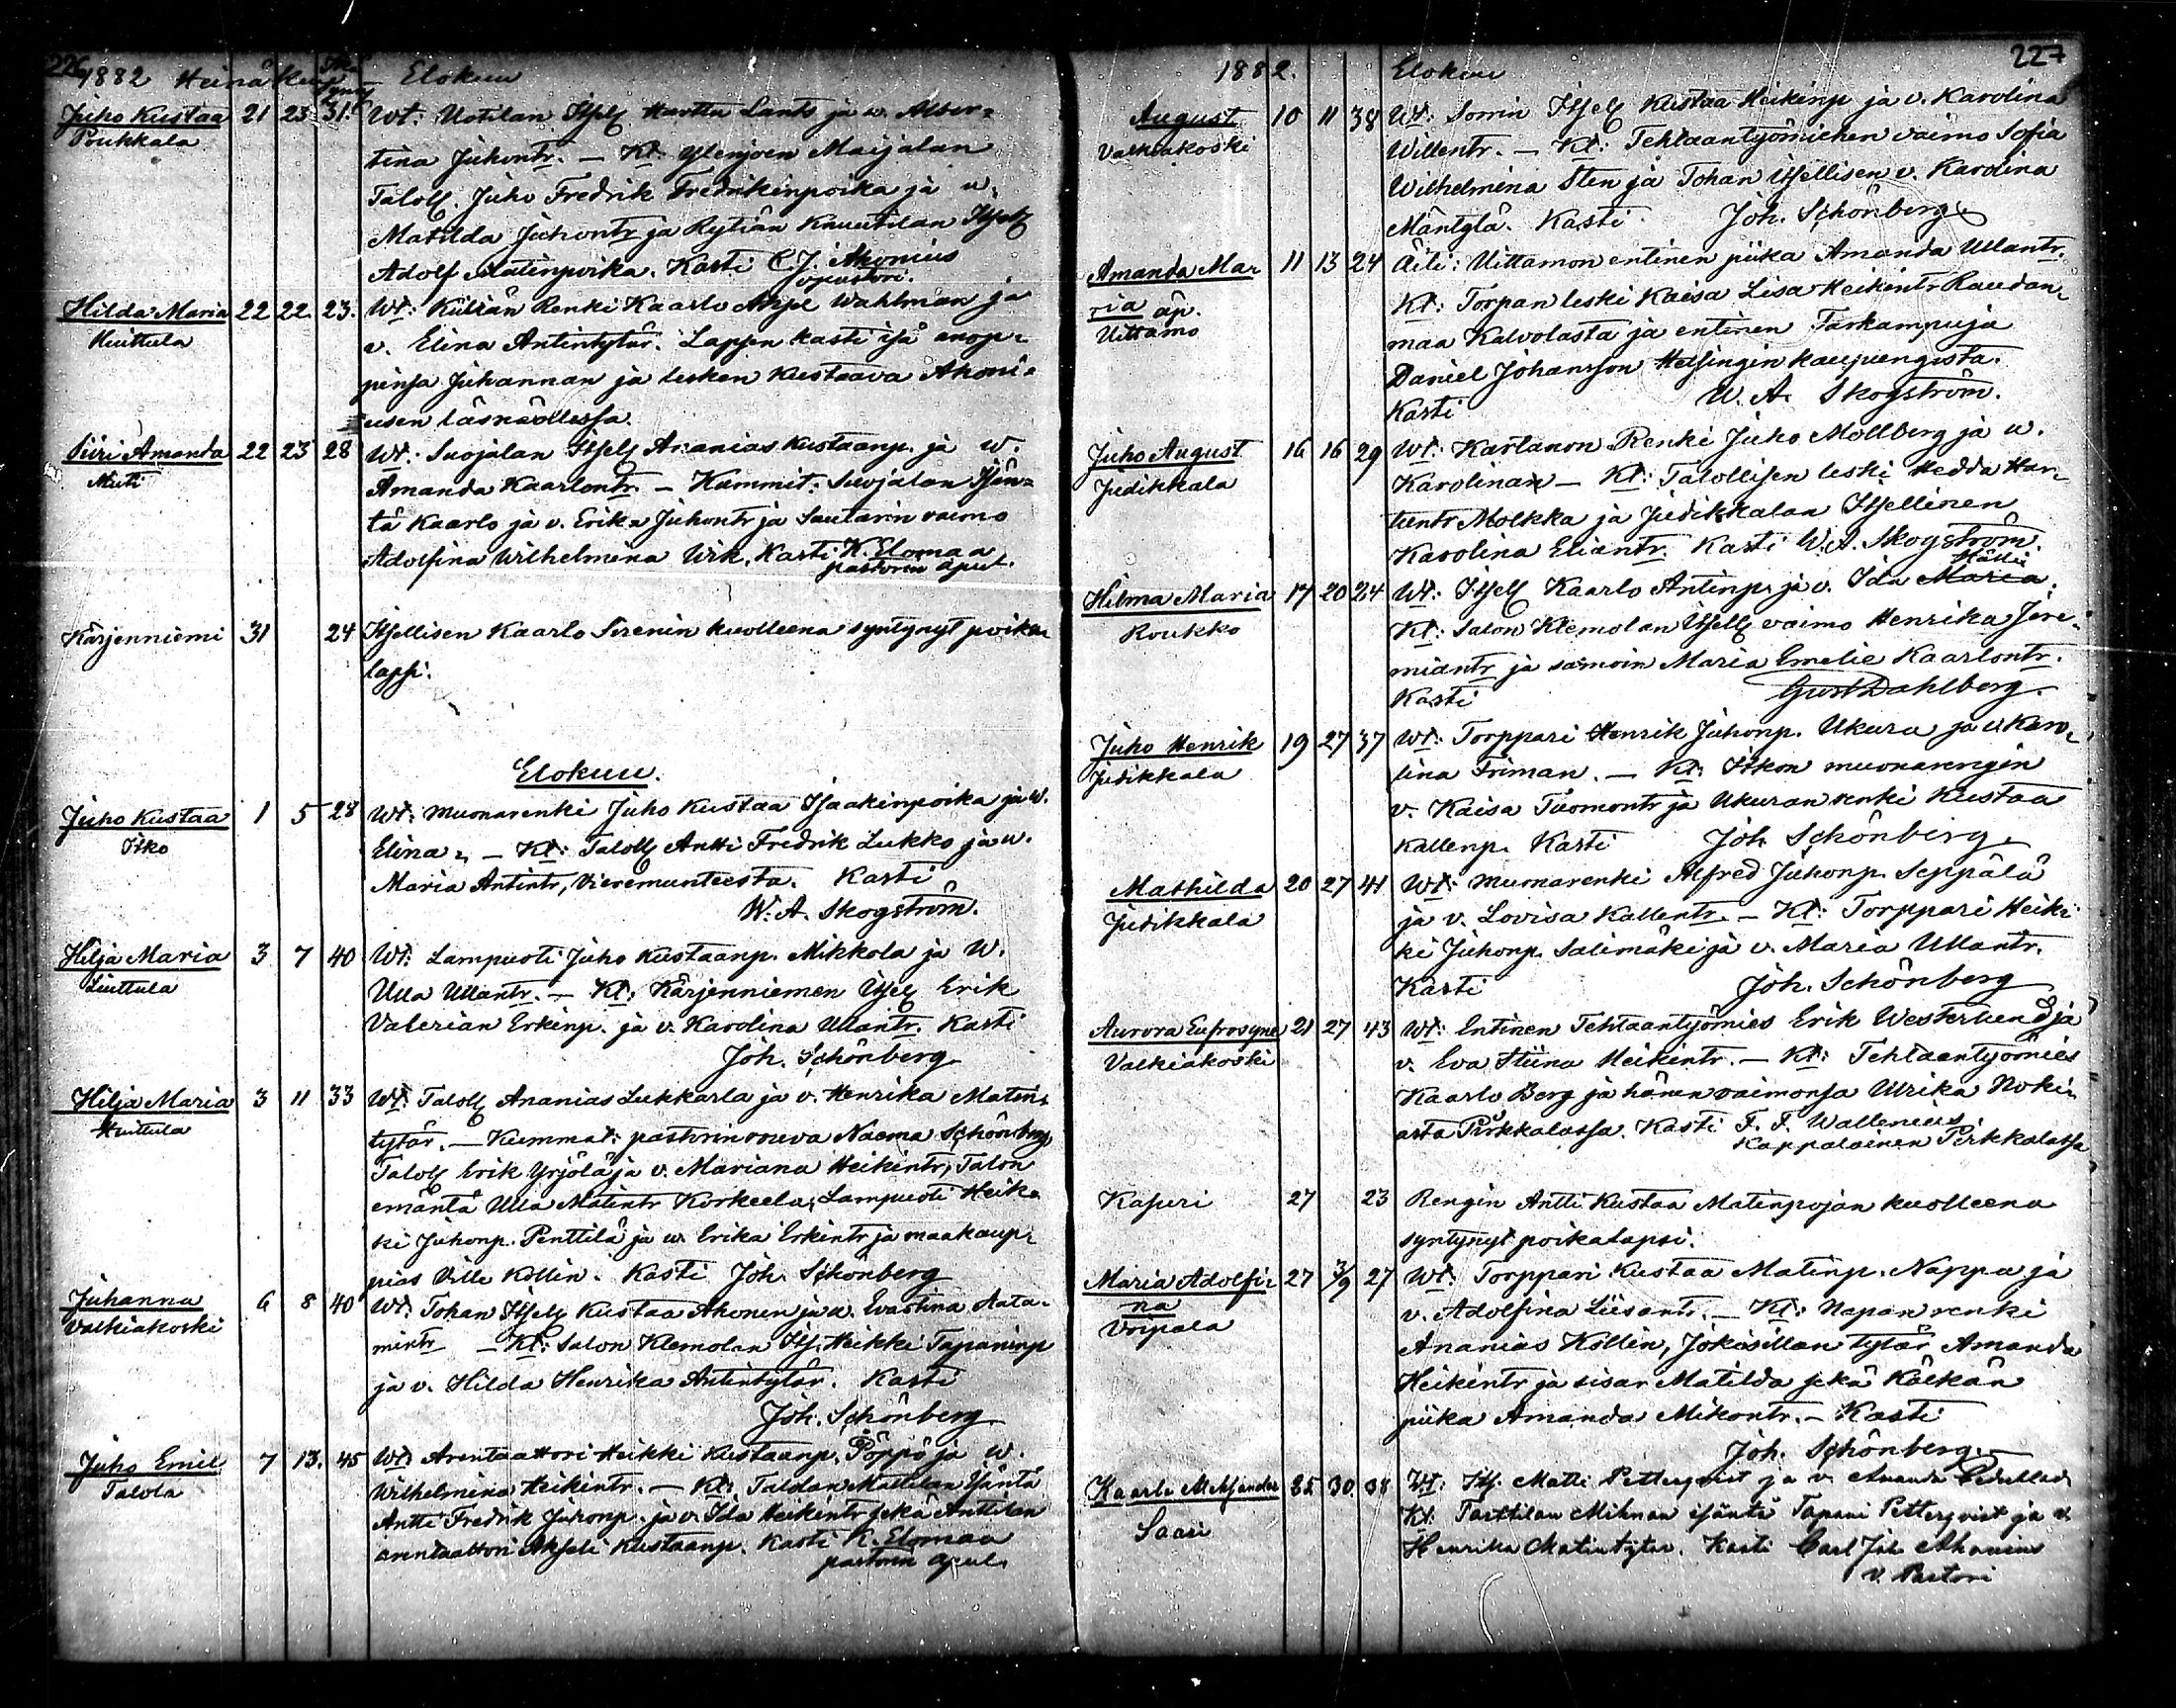 226
1882 Heinäkuu — Elokuu
Juho Kustaa 21 23 31. Wt: Uotilan Itsell Herttu Lants ja w. Alber-
Poukkala tina Juhontr. — Kt: Ylenjoen Maijalan
Taloll. Juho Fredrik Fredrikinpoika ja w.
Matilda Juhontr ja Rytiän Knuutilan Itsell
Adolf Matinpoika. Kasti C. J. Ahonius
v. pastori.
Hilda Maria 22 22. 23. Wt: Kiliän Renki Kaarlo Aksel Wahlman ja
Huittula v. Elina Antintytär. Lapsen kasti isä anop-
pinsa Juhannan ja lesken Kustaava Ahoni-
usen läsnäollessa.
Siiri Amanda 22 23 28 Wt: Suojalan Itsell Ananias Kustaanp. ja w.
Muti Amanda Kaarlontr. — Kummit: Suojalan Isän-
tä Kaarlo ja v. Erika Juhontr ja Suutarin vaimo
Adolfina Wilhelmina Wik. Kasti K. Elomaa
pastorin apul.
Kärjenniemi 31 24 Itsellisen Kaarlo Sirenin kuolleena syntynyt poika-
lapsi.
Elokuu.
Juho Kustaa 1 5 28 Wt: Muonarenki Juho Kustaa Isaakinpoika ja w.
Itko Elina. — Kt: Taloll Antti Fredrik Lukko ja w.
Maria Antintr, Vieremunteesta. Kasti
W. A. Skogström.
Hilja Maria 3 7 40 Wt: Lampuoti Juho Kustaanp. Mikkola ja W.
Liuttula Ulla Ullantr. — Kt: Kärjenniemen Itsell Erik
Valerian Erkinp. ja v. Karolina Ullantr. Kasti
Joh. Schönberg
Hilja Maria 3 11 33 Wt: Taloll Ananias Lukkarla ja v. Henrika Matin-
Huittula tytär. — Kummat: pastorinrouva Naema Schönberg,
Taloll Erik Yrjölä ja v. Mariana Heikintr, Talon
emäntä Ulla Matintr Korkeela, Lampuoti Heik-
ki Juhonp. Penttilä ja w. Erika Erkintr ja maakaup-
pias Ville Kollin. Kasti Joh. Schönberg
Juhanna 6 8 40 Wt: Tohan Itsell Kustaa Ahonen ja w. Evastina Aata-
Valkiakoski mintr — Kt: Salon Klemolan Its. Heikki Tapaninp
ja v. Hilda Henrika Antintytär. Kasti
Joh. Schönberg
Juho Emil 7 13. 45 Wt: Arentaattori Heikki Kustaanp. Pöppö ja w.
Talola Wilhelmina Heikintr. — Kt: Taldan Mattilan Isäntä
Antti Fredrik Juhonp. ja v. Ida Heikintr sekä Anttilan
arentaattori Akseli Kustaanp. Kasti K. Elomaa
pastorin apul.
1882. Elokuu 227
August 10 11 38 Wt: Sorrin Itsell Kustaa Heikinp ja v. Karolina
Valkiakoski Willentr. — Kt: Tehtaantyömiehen vaimo Sofia
Wilhelmina Sten ja Tohan itsellisen v. Karolina
Mäntylä. Kasti Joh. Schönberg
Amanda Ma- 11 13 24 Äiti: Uittamon entinen piika Amanda Ullantr.
ria äp. Kt: Torpan leski Kaisa Lisa Heikintr Raudan-
Uittamo maa Kalvolasta ja entinen Tarkampuja
Daniel Johansson Helsingin kaupungista.
Kasti W. A. Skogström.
Juho August 16 16 29 Wt: Karlanon Renki Juho Mollberg ja w.
Judikkala Karolinan — Kt: Talollisen leski Hedda Har-
tuntr Molkka ja Judikkalan Itsellinen
Karolina Eliantr. Kasti W. A. Skogström.
Hälli
Hilma Maria 17 20 24 Wt: Itsell Kaarlo Antinp. ja v. Ida Maria.
Roukko Kt: Salon Klemolan Itsell vaimo Henrika Jere-
miantr ja samoin Maria Emelie Kaarlontr.
Kasti Gust Dahlberg.
Juho Henrik 19 27 37 Wt: Torppari Henrik Juhonp. Ukura ja v. Karo-
Judikkala lina Friman. — Kt: Itkon muonarengin
v. Kaisa Tuomontr ja Ukuran renki Kustaa
Kallenp. Kasti Joh. Schönberg.
Mathilda 20 27 41 Wt: Muonarenki Alfred Juhonp. Seppälä
Judikkala ja v. Lovisa Kallentr. — Kt: Torppari Heik-
ki Juhonp. Salimäki ja v. Maria Ullantr.
Kasti Joh. Schönberg
Aurora Eufrosyne 21 27 43 Wt: Entinen Tehtaantyömies Erik Westerlund ja
Valkiakoski v. Eva Stiina Heikintr. — Kt: Tehtaantyömies
Kaarlo Berg ja hänen vaimonsa Ulrika Noki-
asta Pirkkalassa. Kasti F. F. Wallenius
Kappalainen Pirkkalassa
Kapuri 27 23 Rengin Antti Kustaa Matinpojan kuolleena
syntynyt poikalapsi.
Maria Adolfi- 27 3/9 27 Wt: Torppari Kustaa Matinp. Nappa ja
na v. Adolfina Liisantr. — Kt: Napan renki
Voipala Ananias Kollin, Jokisillan tytär Amanda
Heikintr ja sisar Matilda sekä Käekän
piika Amanda Mikontr. — Kasti
Joh. Schönberg.
Kaarlo M 25 30. 38 Wt: Its. Matti Petterqvist ja v. Amanda
Saari Kt. Tarttilan Mihnan isäntä Tapani Petterqvist ja v.
Henrika Matintytär. Kasti Carl Joh. Ahonius
v. Pastori